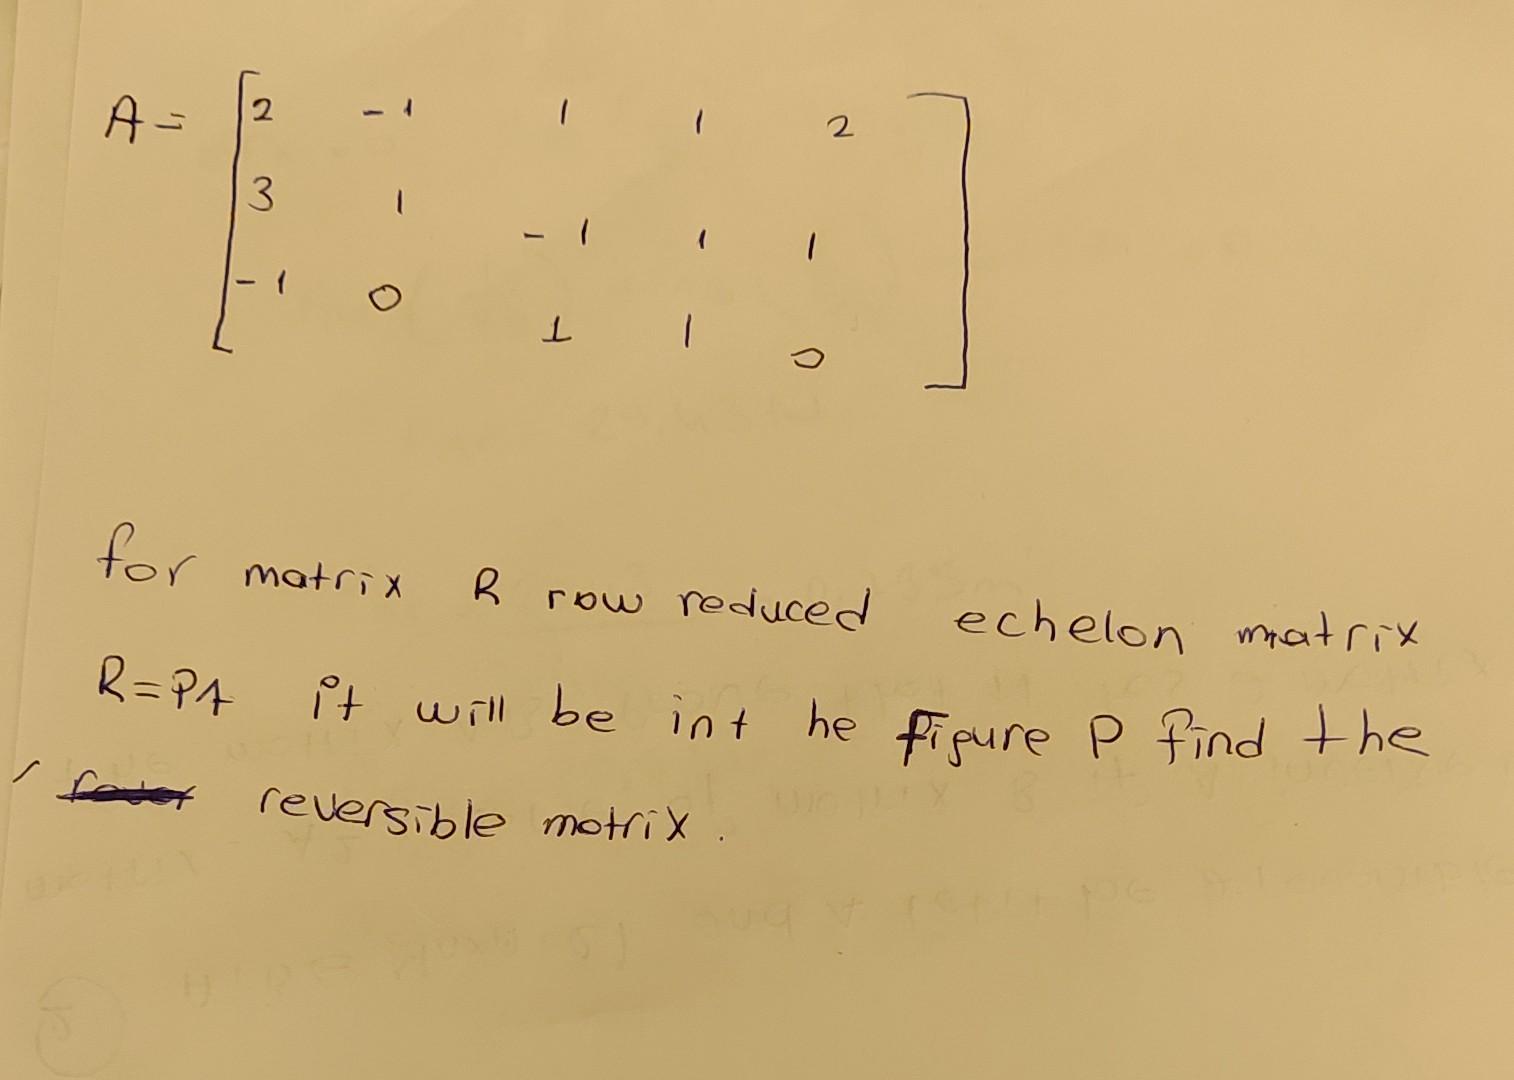 A= [ 2 -1 1 1 2 ]
3 1 -1 1 1
-1 0 1 1 0
for matrix R row reduced echelon matrix
R=PA it will be int he figure P find the
reversible matrix.